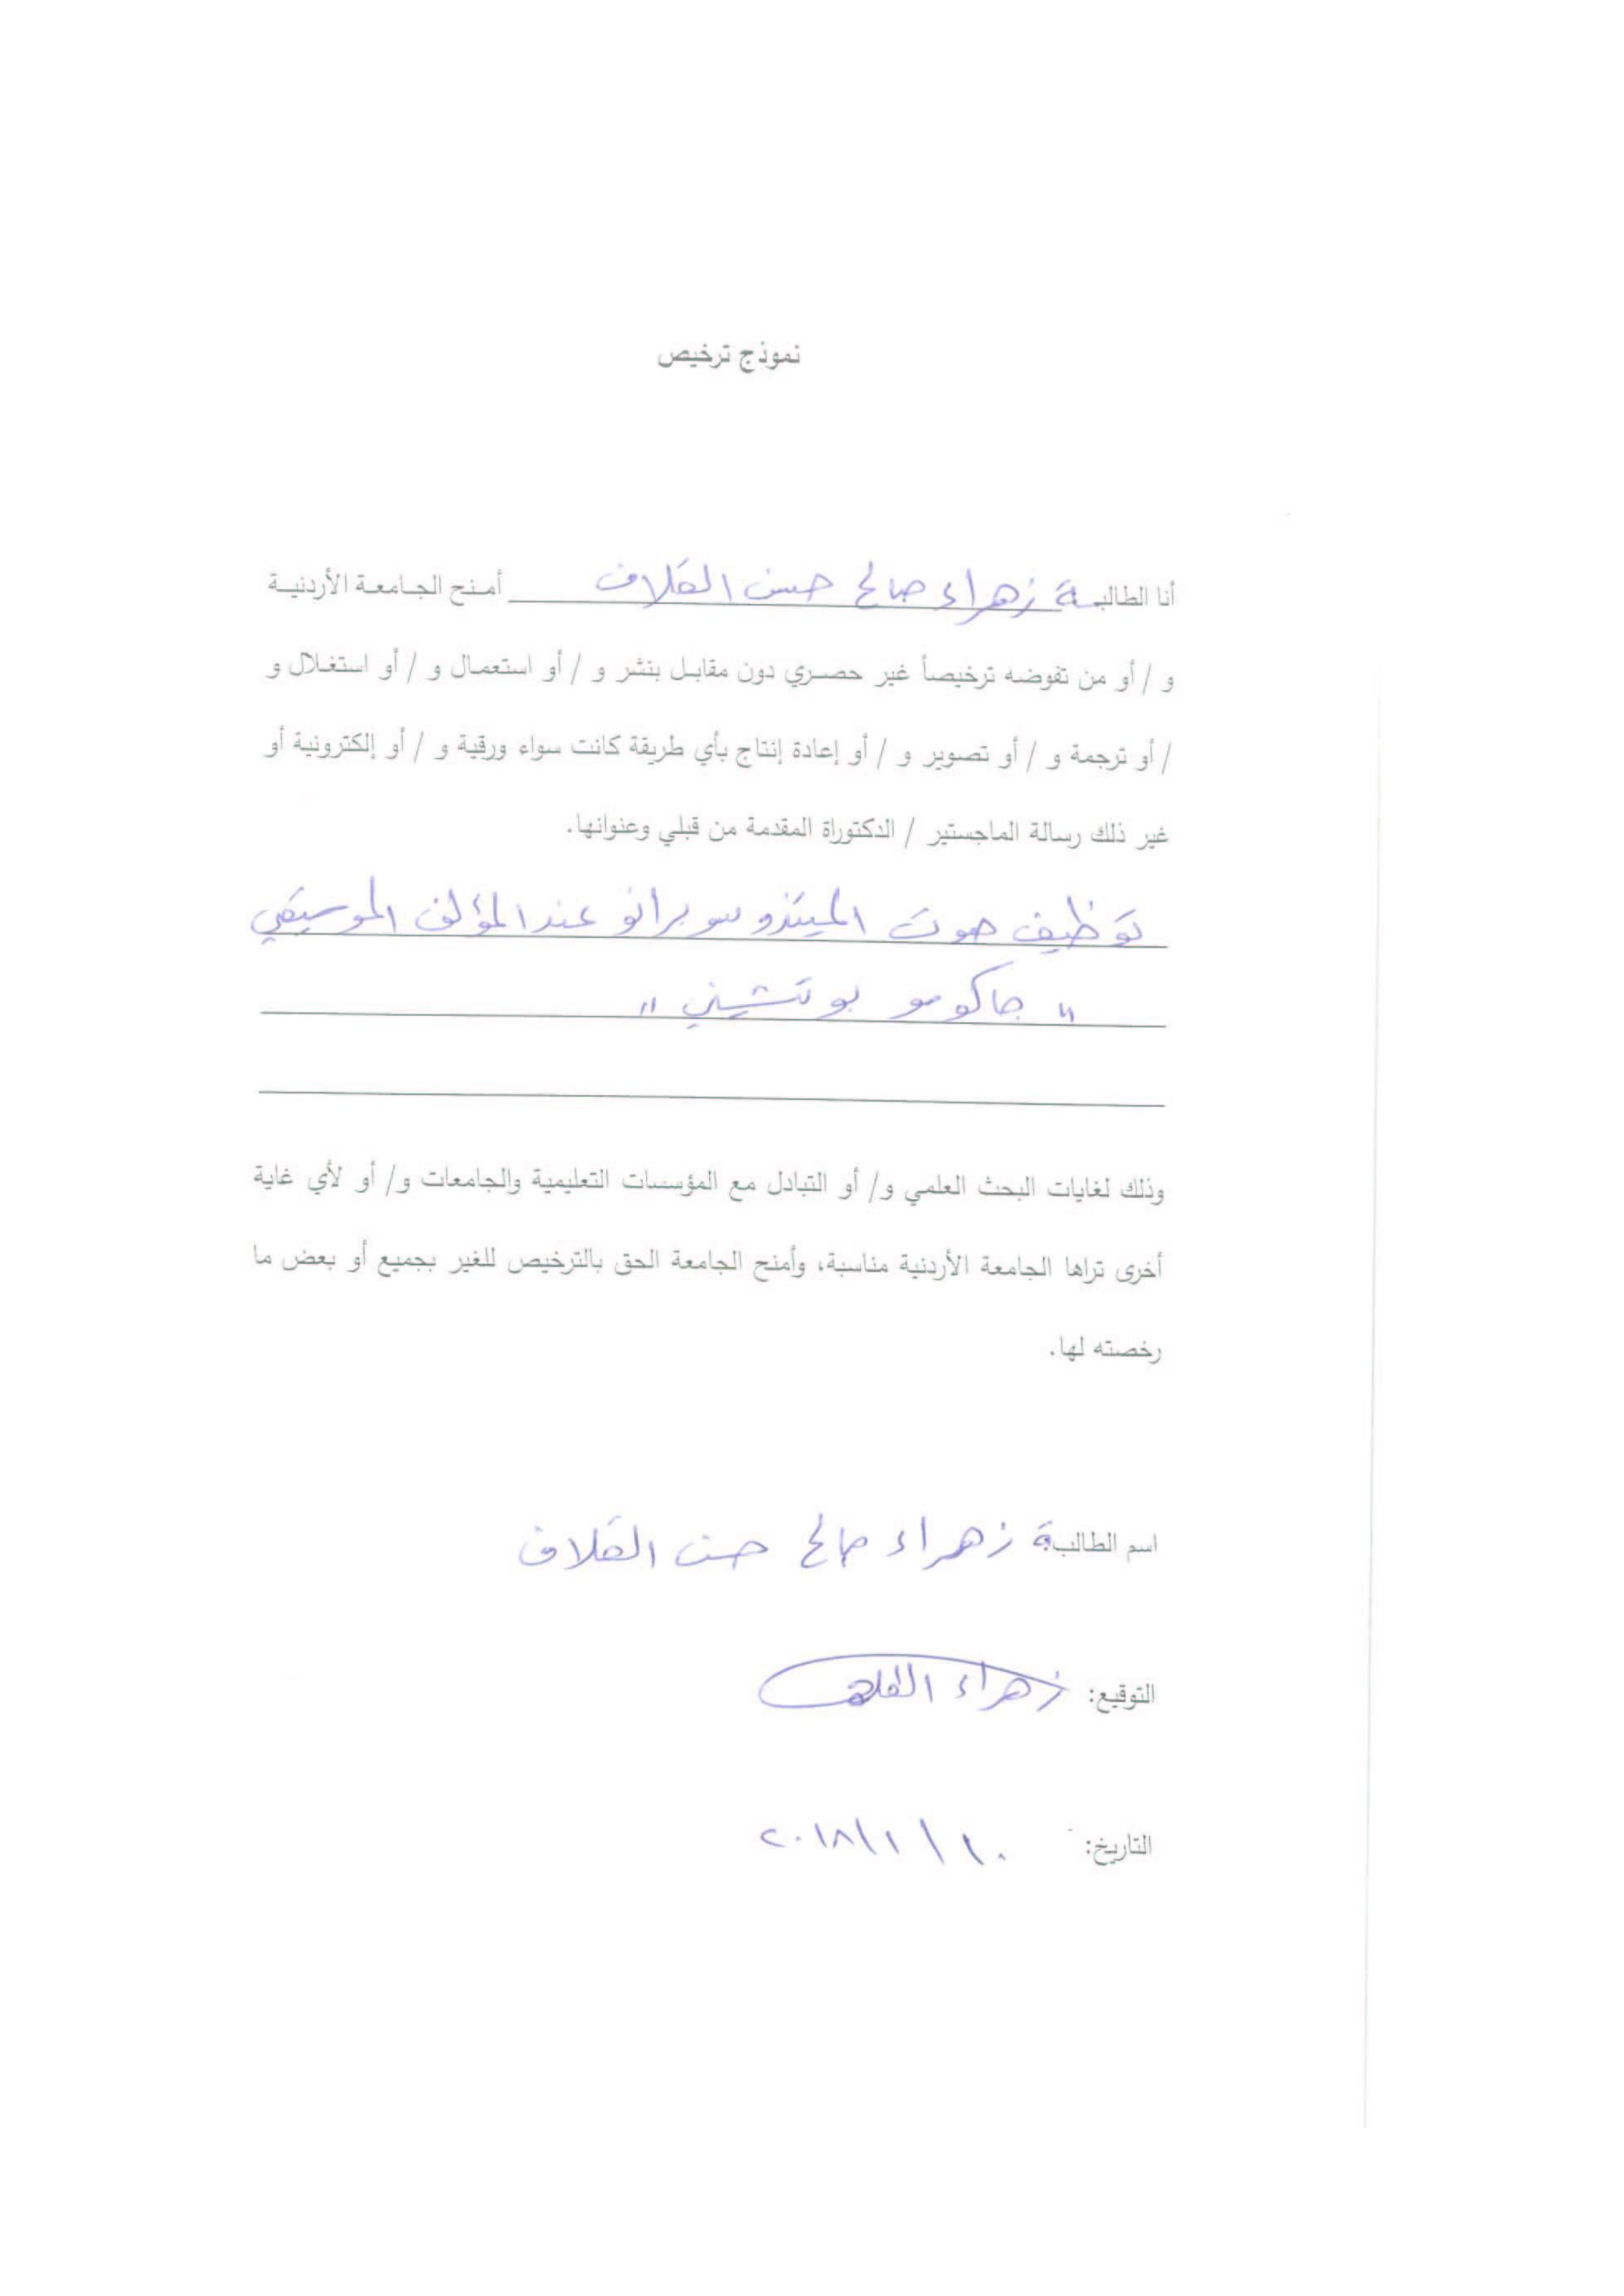 نموذج ترخيص
أنا الطالبة زهراء صالح حسن القلاف أمنح الجامعة الأردنية
و / أو من تفوضه ترخيصاً غير حصري دون مقابل بنشر و / أو استعمال و / أو استغلال و
/ أو ترجمة و / أو تصوير و / أو إعادة إنتاج بأي طريقة كانت سواء ورقية و / أو إلكترونية أو
غير ذلك رسالة الماجستير / الدكتوراة المقدمة من قبلي وعنوانها.
توظيف صوت الميتزو سوبرانو عند المؤلف الموسيقي
" جاكومو بوتشيني "
وذلك لغايات البحث العلمي و/ أو التبادل مع المؤسسات التعليمية والجامعات و/ أو لأي غاية
أخرى تراها الجامعة الأردنية مناسبة، وأمنح الجامعة الحق بالترخيص للغير بجميع أو بعض ما
رخصته لها.
اسم الطالبة: زهراء صالح حسن القلاف
التوقيع: زهراء القلاف
التاريخ: ١٠ / ١ / ٢٠١٨